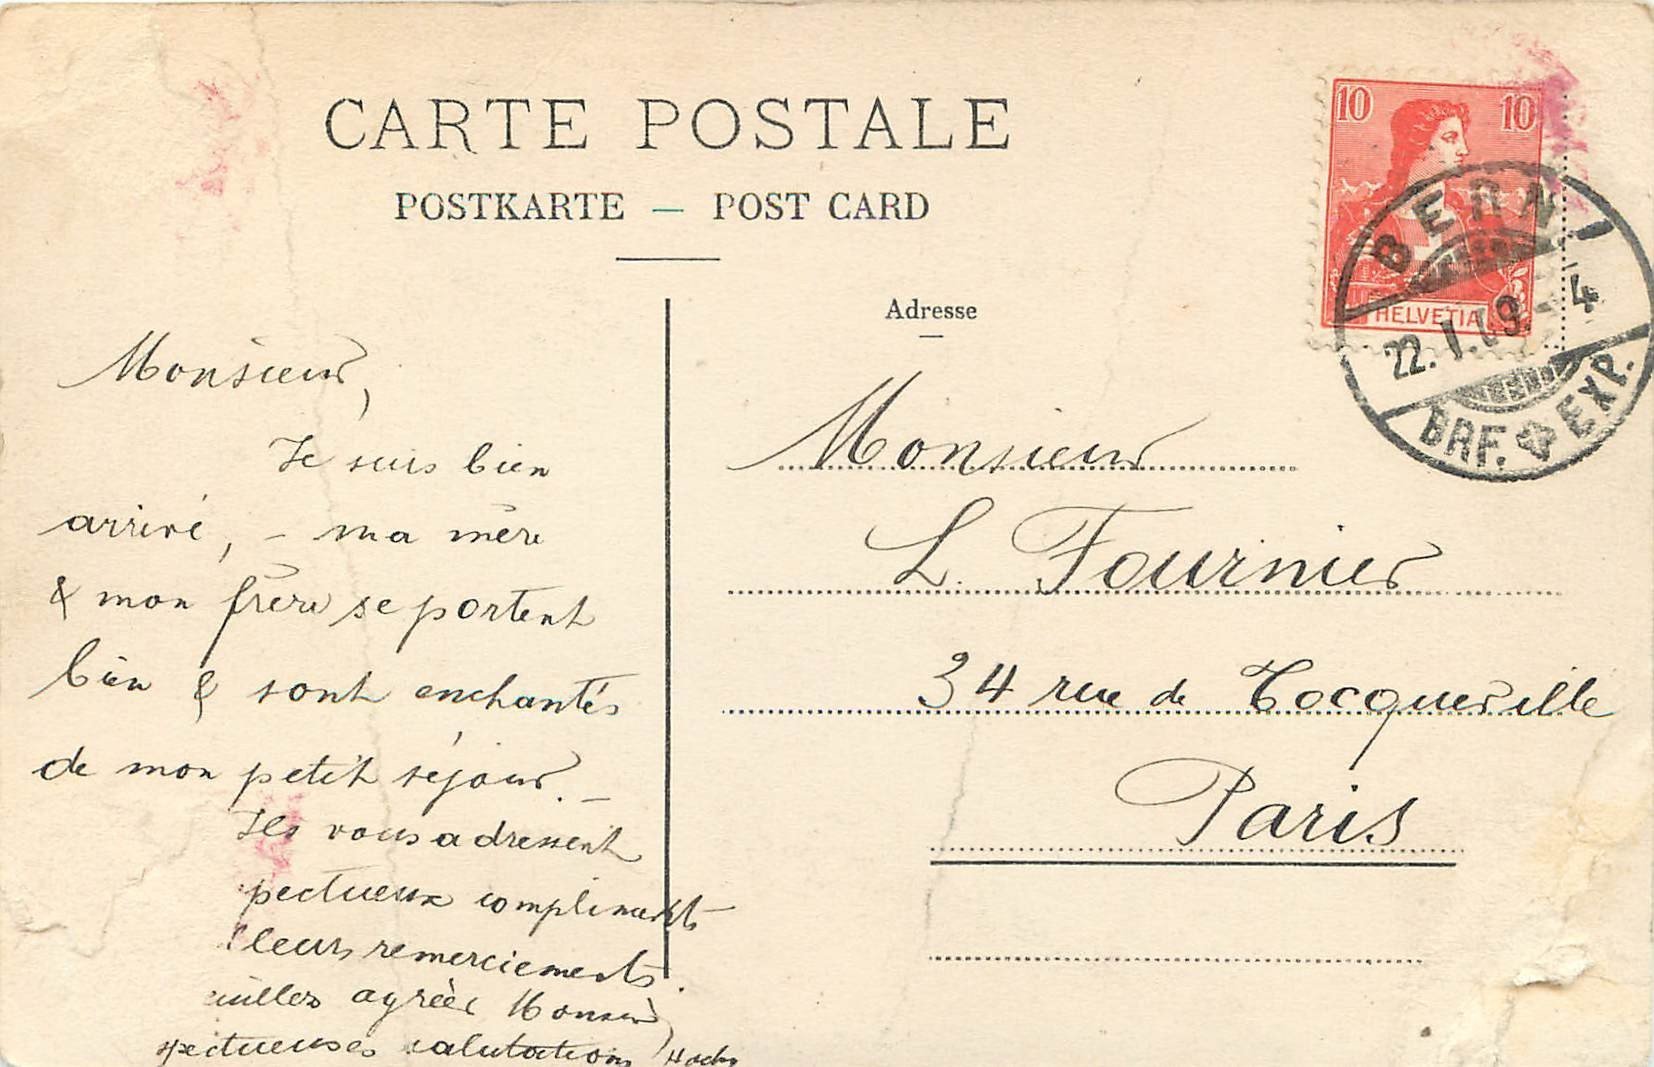 CARTE POSTALE
POSTKARTE — POST CARD
Adresse
10 10
HELVETIA
BERN 1
22. I. 09 - 4
BRF. EXP.
Monsieur,
Je suis bien
arrivé, - ma mère
& mon frère se portent
bien & sont enchantés
de mon petit séjour. -
Ils vous adressent
pectueux compliments
leurs remerciements.
euillez agréer Monsieur,
spectueuses salutations
Monsieur
L. Fournier
34 rue de Tocqueville
Paris